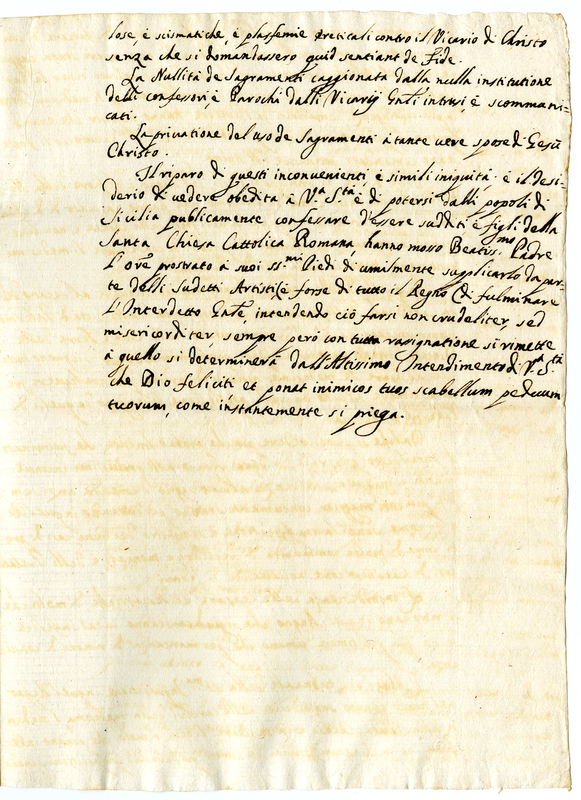 lose, è scismatiche, è plasfemie ereticali contro il Vicario di Christo
senza che si domandassero quid sentiant de Fide.
La Nullità de Sagramenti caggionata dalla nulla institutione
delli confessori, è Parochi dalli Vicarij Gnli intrusi, è scommuni=
cati.
La privatione del uso de Sagramenti à tante vere spose di Gesù
Christo.
Il riparo di questi inconvenienti è simili iniquità, è il desi=
derio di vedere obedita à V.ª S.tà è di potersi dalli popoli di
Sicilia publicamente confessare d'essere sudditi è figli della
Santa Chiesa Cattolica Romana, hanno mosso Beatiss.mo Padre
L'ore prostrato à suoi ss.mi Piedi di umilmente supplicarlo da par=
te delli sudetti Artisti (è forse di tutto il Regno) di fulminare
L'Interdetto Gnle, intendendo ciò farsi non crudeliter, sed
misericorditer, sempre però con tutta rassignatione si rimette
à quello si determinerà dall'Altissimo Intendimento di V.ª S.tà
che Dio feliciti et ponat inimicos tuos scabellum peduum
tuorum, come instantemente si priega.